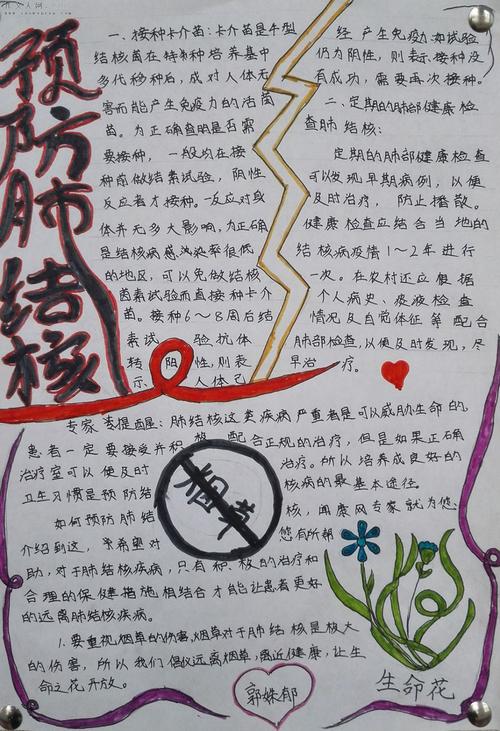 预防肺结核
一、接种卡介苗:卡介苗是牛型
结核菌在特制种培养基中
多代移种后，成对人体无
害而能产生免疫力的活菌
苗。为正确查明是否需
要接种，一般均在接
种前做结素试验，阴性
反应者才接种。反应对或
体并无多大影响，为正确
是结核病感染率很低
的地区，可以免做结核
菌素试验而直接种卡介
苗。接种6~8周后结
素试验抗体
转阳性，则表
示人体已
经产生免疫力如试验
仍为阴性，则表示接种没
有成功，需要再次接种。
二、定期的肺部健康检
查肺结核:
定期的肺部健康检查
可以发现早期病例，以便
及时治疗，防止播散。
健康检查应结合当地的
结核病疫情1~2年进行
一次。在农村还应根据
个人病史、痰液检查
情况及自觉体征等配合
肺部检查，以便及时发现，尽
早治疗。
专家李提醒:肺结核这类疾病严重者是可以威胁生命的
患者一定要接受并积极配合正规的治疗，但是如果正确
治疗室可以便及时治疗。所以培养成良好的
卫生习惯是预防结核病的最基本途径。
如何预防肺结核，闻康网专家就为您
介绍到这，希望对您有所帮
助，对于肺结核疾病，只有积极的治疗和
合理的保健措施相结合才能让患者更好
的远离肺结核疾病。
1.要重视烟草的伤害，烟草对于肺结核是极大
的伤害，所以我们倡议远离烟草，靠近健康，让生
命之花开放。
烟草
郭姝郁
生命花